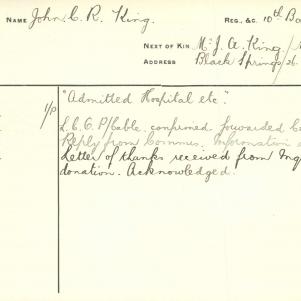 NAME John C. R. King. REG., &C. 10th Ba
NEXT OF KIN Mr J. A. King /
ADDRESS Black Springs /26.
1/P "Admitted Hospital etc."
L.C.O. P/Cable. confirmed forwarded C
Reply from Commrs. Information
Letter of thanks received from Inq
donation. Acknowledged.